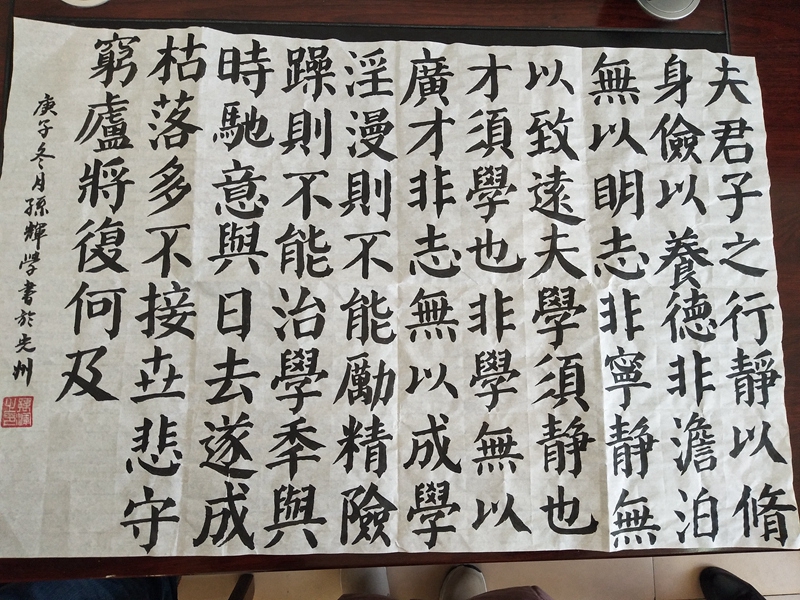 夫君子之行靜以脩
身儉以養德非澹泊
無以明志非寧靜無
以致遠夫學須靜也
才須學也非學無以
廣才非志無以成學
淫漫則不能勵精險
躁則不能治學秊與
時馳意與日去遂成
枯落多不接世悲守
窮廬將復何及
庚子冬月孫輝學書於兗州